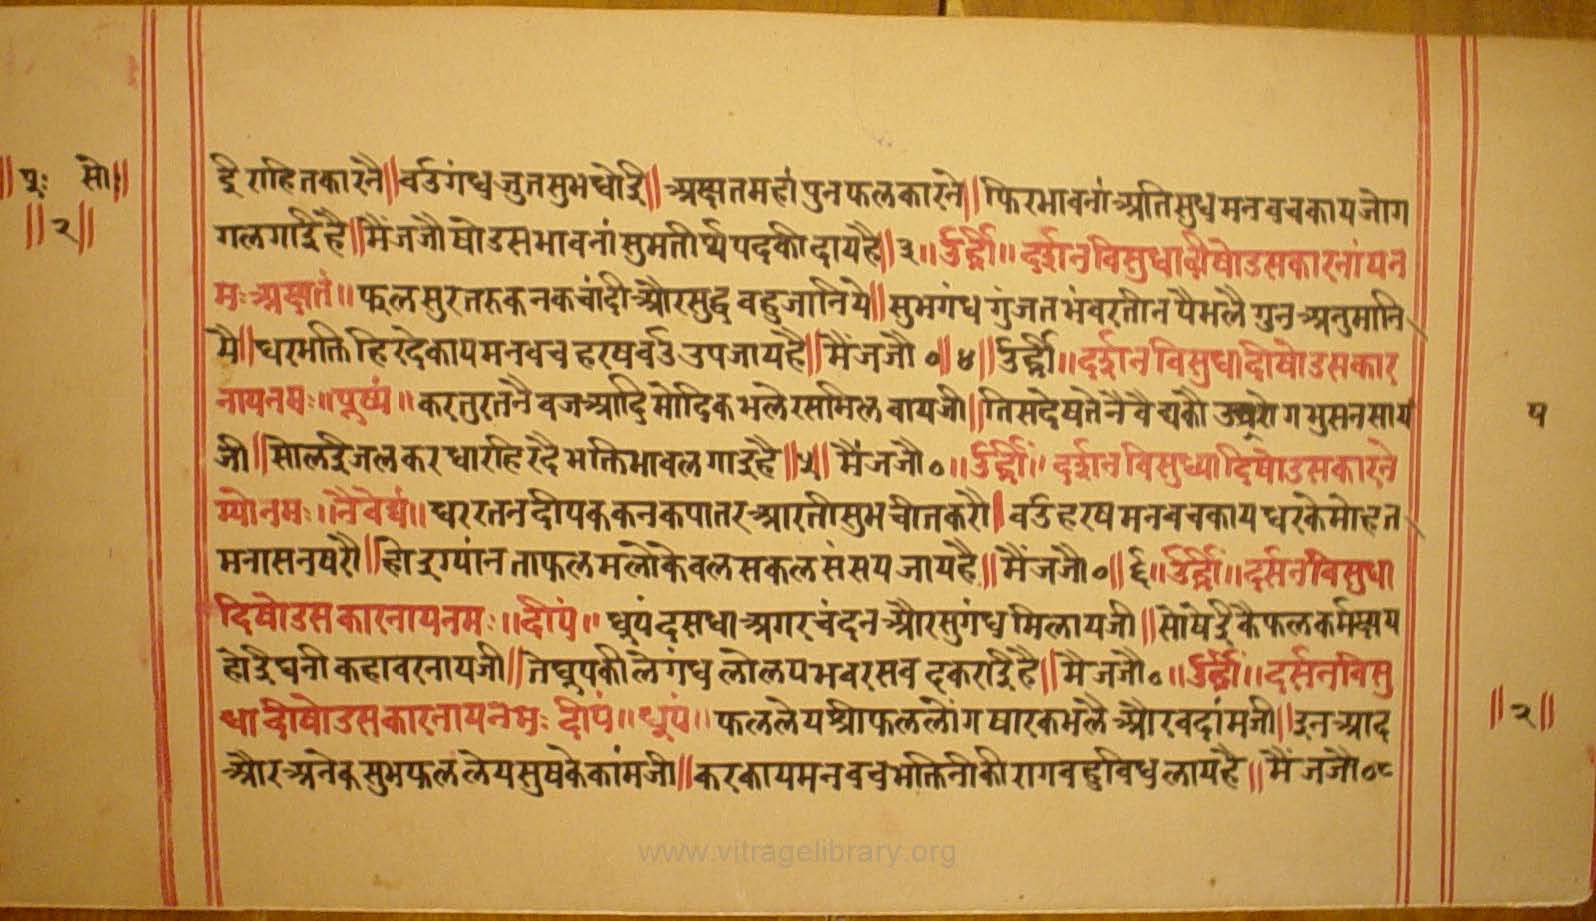 ॥पूः सो॥
॥२॥
द्रै राहितकारनै॥ वर्उगंध जुत सुभ घोइि॥ अक्षत महां पुन फल कारने॥ फिर भावनां अति सुध मन वच काय जोग
गल गाईहै॥ मैं जजौ षोडस भावनां सुभ तीर्थ पद की दायहै॥३॥ उँह्रीं॥ दर्शन विसुधादी षोडस कारनांय न
मः अक्षतं॥ फल सुर तरु कनक चांदी और सुद्ध बहु जानिये॥ सुभ गंध गुंजत भंवर तीन पै भलै गुन अनुमानि
यै॥ धर भक्ति हिरदे काय मन वच हरष वर्उ उपजाय है॥ मैं जजौ ०॥४॥ उँह्रीं॥ दर्शन विसुधादी षोडस कार
नाय नमः॥ पुष्पं॥ कर तुरत नैवज आदि मोदिक भले रस मिलवाय जी॥ तिस देषते नै वैद्यकौ रोग भुसन साय
जी॥ सो लई जल कर धार हिरदै भक्ति भाव लगाइ है॥५॥ मैं जजौ ०॥ उँह्रीं॥ दर्शन विसुध्यादि षोडस कारने
भ्यो नमः॥ नैवेद्यं॥ धर रतन दीपक कनक पातर आरती सुभ चीत करौ॥ वर्उ हरष मन वच काय धरके मोह त
म नासन यरौ॥ होइ ग्यांन ताफल मलो केवल सकल संसय जाय है॥ मैं जजौ ०॥६॥ उँह्रीं॥ दर्सन विसुधा
दि षोडस कारनाय नमः॥ दीपं॥ धूपं दसधा अगर चंदन और सुगंध मिलाय जी॥ सो येई कै फल कर्म क्षय
होई घनी कहा वरनाय जी॥ ते धूप की ले गंध लोलप भवर सव कराई है॥ मै जजौ ०॥ उँह्रीं॥ दर्सन विसु
धादी षोडस कारनाय नमः दीपं॥ धूपं॥ फल लेय श्रीफल लोंग षारक भलै और वदांम जी॥ उन आद
और अनेक सुभ फल लेय सुष के कांम जी॥ कर काय मन वच भक्ति नीकी राग बहु विध लाय है॥ मैं जजौ ०८
५
॥२॥
www.vitragelibrary.org